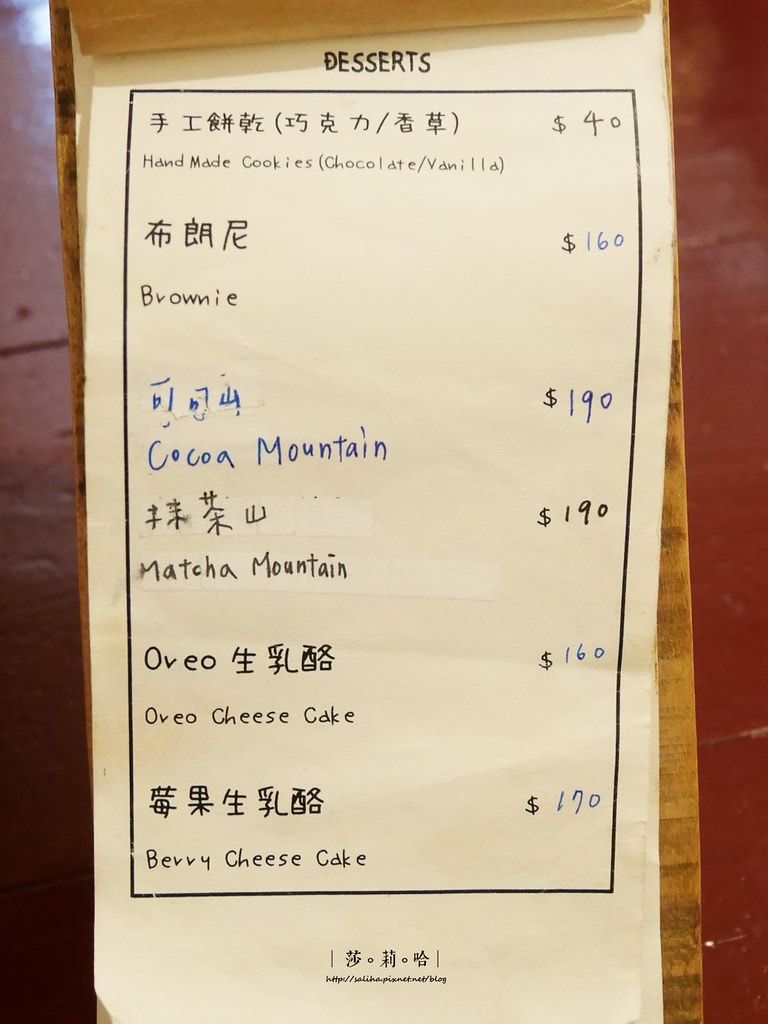 DESSERTS
手工餅乾(巧克力/香草) $ 40
Hand Made Cookies(Chocolate/Vanilla)
布朗尼 $ 160
Brownie
可可山 $ 190
Cocoa Mountain
抹茶山 $ 190
Matcha Mountain
Oreo 生乳酪 $ 160
Oreo Cheese Cake
莓果生乳酪 $ 170
Berry Cheese Cake
|莎。莉。哈|
http://saliha.pixnet.net/blog